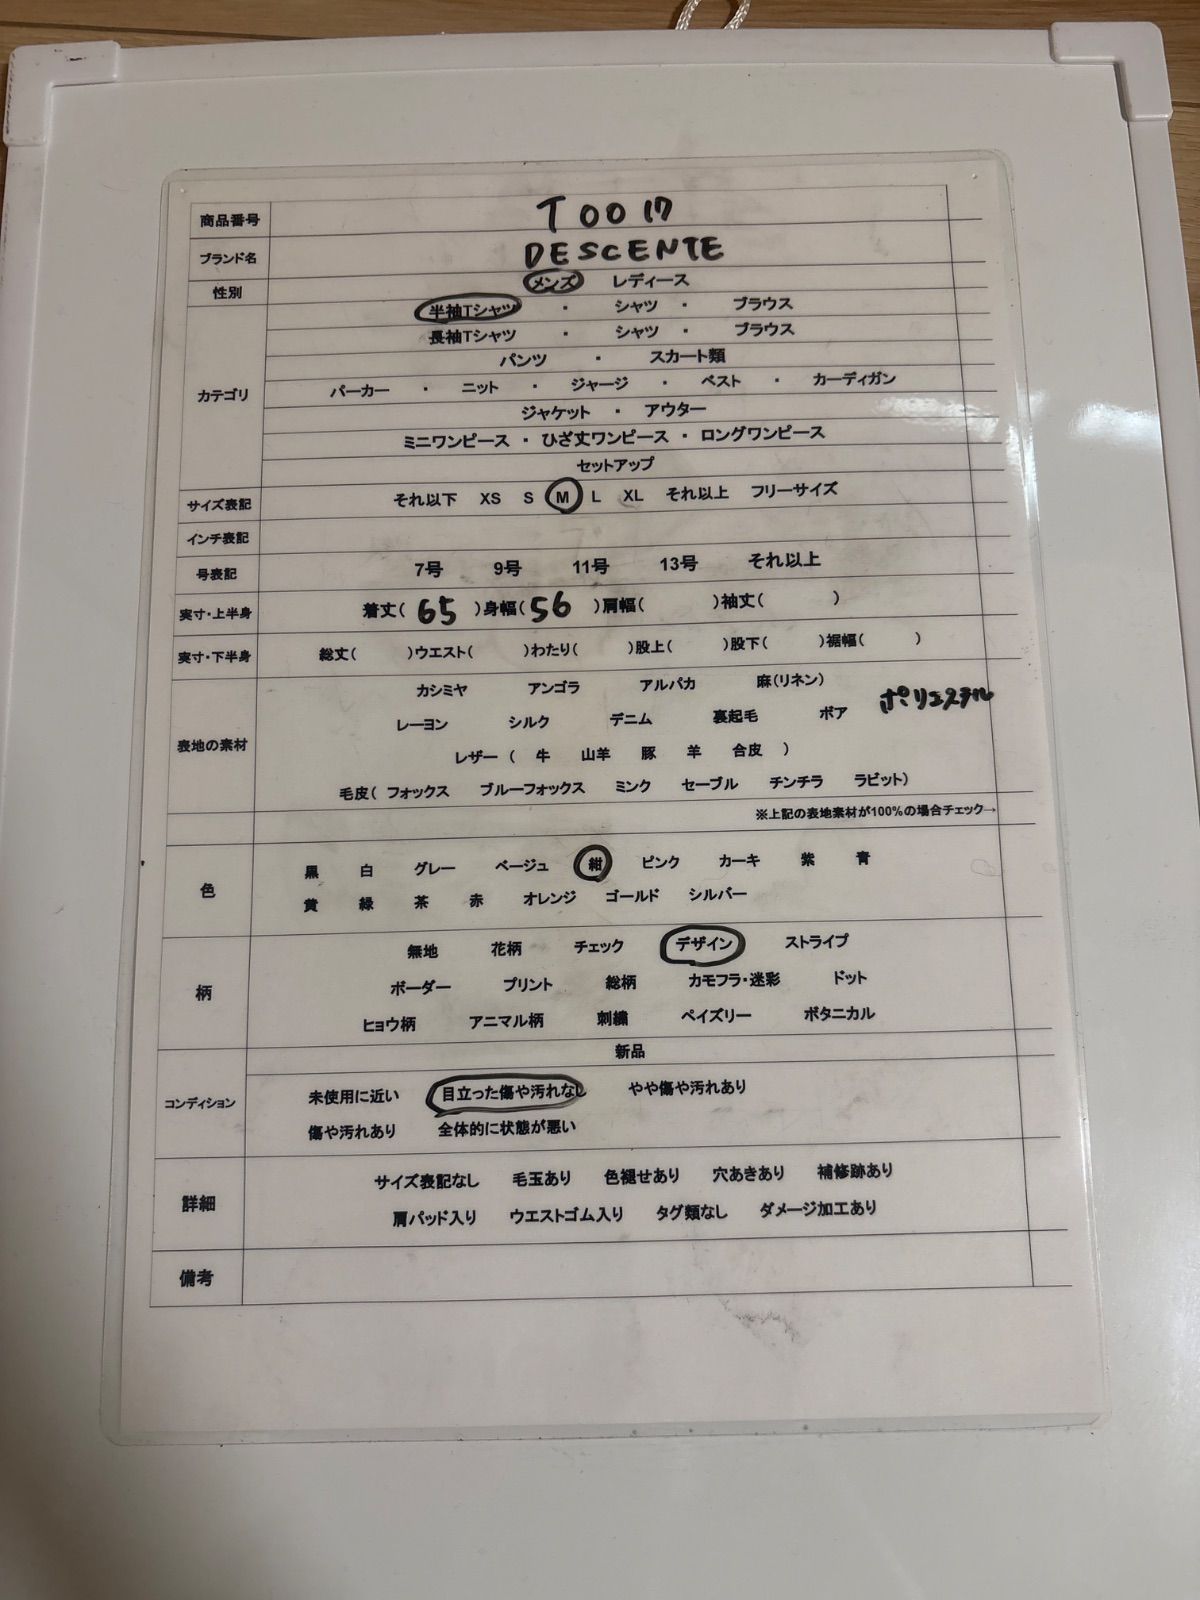 商品番号 T0017
ブランド名 DESCENTE
性別 メンズ レディース
カテゴリ
半袖Tシャツ ・ シャツ ・ ブラウス
長袖Tシャツ ・ シャツ ・ ブラウス
パンツ ・ スカート類
パーカー ・ ニット ・ ジャージ ・ ベスト ・ カーディガン
ジャケット ・ アウター
ミニワンピース ・ ひざ丈ワンピース ・ ロングワンピース
セットアップ
サイズ表記 それ以下 XS S M L XL それ以上 フリーサイズ
インチ表記
号表記 7号 9号 11号 13号 それ以上
実寸・上半身 着丈( 65 )身幅( 56 )肩幅( )袖丈( )
実寸・下半身 総丈( )ウエスト( )わたり( )股上( )股下( )裾幅( )
表地の素材
カシミヤ アンゴラ アルパカ 麻(リネン)
ポリエステル
レーヨン シルク デニム 裏起毛 ボア
レザー ( 牛 山羊 豚 羊 合皮 )
毛皮( フォックス ブルーフォックス ミンク セーブル チンチラ ラビット)
※上記の表地素材が100%の場合チェック→
色
黒 白 グレー ベージュ 紺 ピンク カーキ 紫 青
黄 緑 茶 赤 オレンジ ゴールド シルバー
柄
無地 花柄 チェック デザイン ストライプ
ボーダー プリント 総柄 カモフラ・迷彩 ドット
ヒョウ柄 アニマル柄 刺繍 ペイズリー ボタニカル
コンディション
新品
未使用に近い 目立った傷や汚れなし やや傷や汚れあり
傷や汚れあり 全体的に状態が悪い
詳細
サイズ表記なし 毛玉あり 色褪せあり 穴あきあり 補修跡あり
肩パッド入り ウエストゴム入り タグ類なし ダメージ加工あり
備考